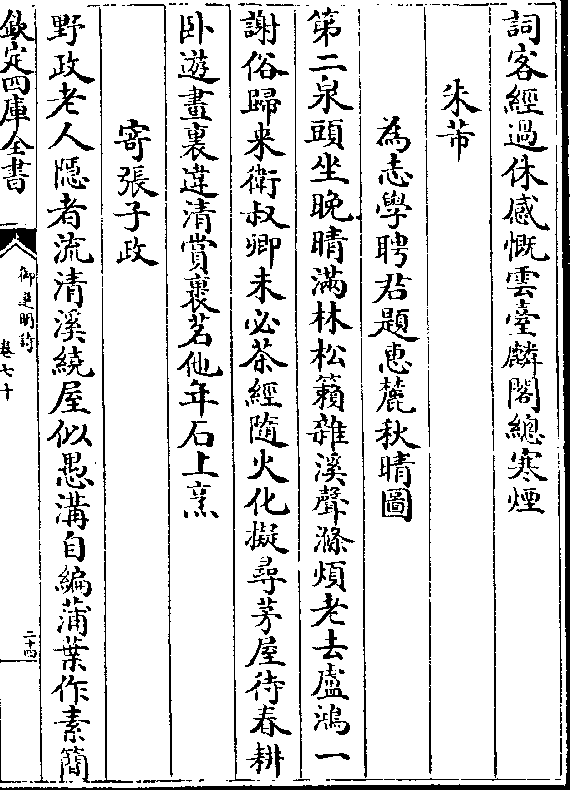 詞客經過休感慨雲臺麟閣總寒煙
朱芾
為志學聘君題惠麓秋晴圖
第二泉頭坐晚晴滿林松籟雜溪聲滌煩老去盧鴻一
謝俗歸来衛叔卿未必茶經隨火化擬尋茅屋待春耕
卧遊畫裏違清賞裹茗他年石上烹
寄張子政
野政老人隱者流清溪繞屋似愚溝自編蒲葉作素簡
欽定四庫全書
御選明詩
卷七十
二十四